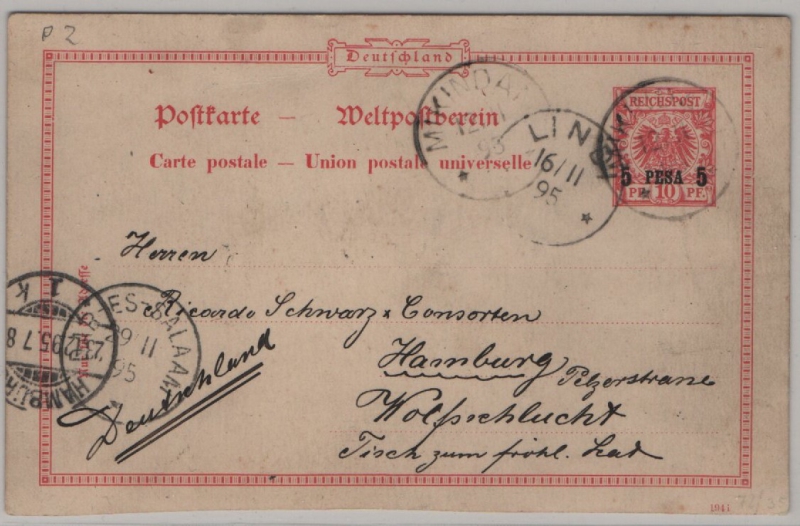 P 2
Deutschland
Postkarte — Weltpostverein
Carte postale — Union postale universelle
REICHSPOST
5 PESA 5
PF. 10 PF.
MIKINDANI
95
LINDI
16/11
95
Herren
Ricardo Schwarz & Consorten
Hamburg Pelzerstrasse
Wolfsschlucht
Tisch zum fröhl.
Deutschland
DAR-ES-SALAAM
29 11
95
HAMBURG
95.7 8
1. K